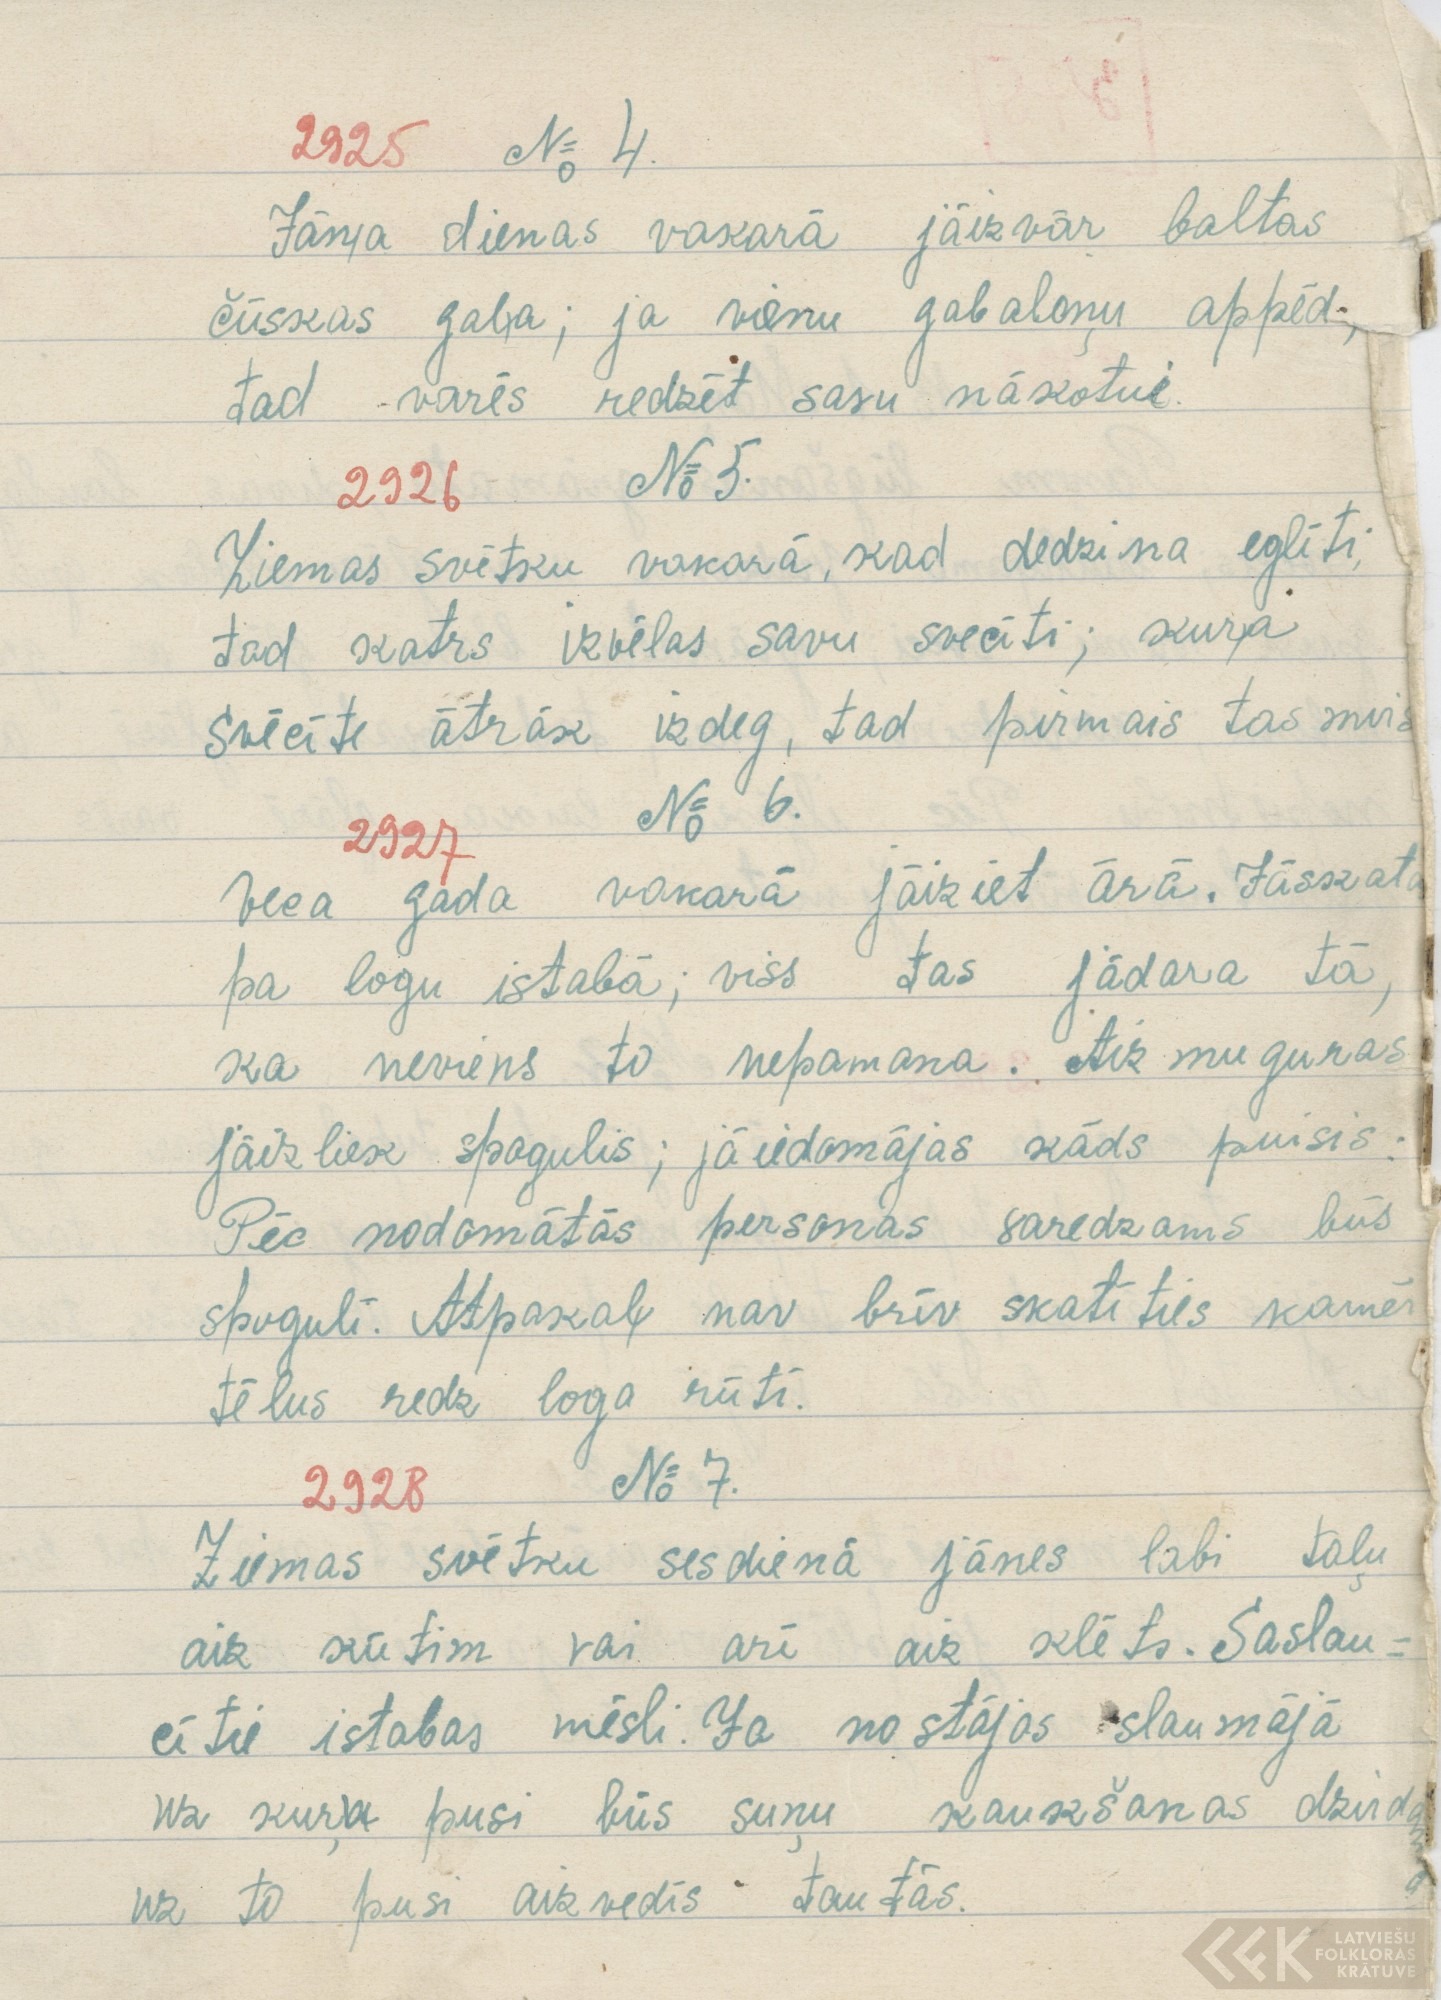 2925 № 4.
Jāņa dienas vakarā jāizvār baltas
čūskas gaļa; ja vienu gabaloņu appēd,
tad varēs redzēt savu nākotni.
2926 № 5.
Ziemas svētku vakarā, kad dedzina eglīti,
tad katrs izvēlas savu svecīti; kuŗa
svēcīte ātrāk izdeg, tad pirmais tas mirs
2927 № 6.
Veca gada vakarā jāiziet ārā. Jāskata
pa logu istabā; viss tas jādara tā,
ka neviens to nepamana. Aiz muguras
jāizliek spogulis; jāiedomājas kāds puisis.
Pēc nodomātās personas saredzams būs
spogulī. Atpakaļ nav brīv skatīties kamēr
tēlus redz loga rūtī.
2928 № 7.
Ziemas svētku sesdienā jānes labi taļu
aiz kūtim vai arī aiz klēts. Saslau=
cītie istabas mēsli. Ja nostājas slaumājā
uz kuŗu pusi būs suņu kaukšanas dzirdama
uz to pusi aizvedīs tautās.
LATVIEŠU
FOLKLORAS
KRĀTUVE